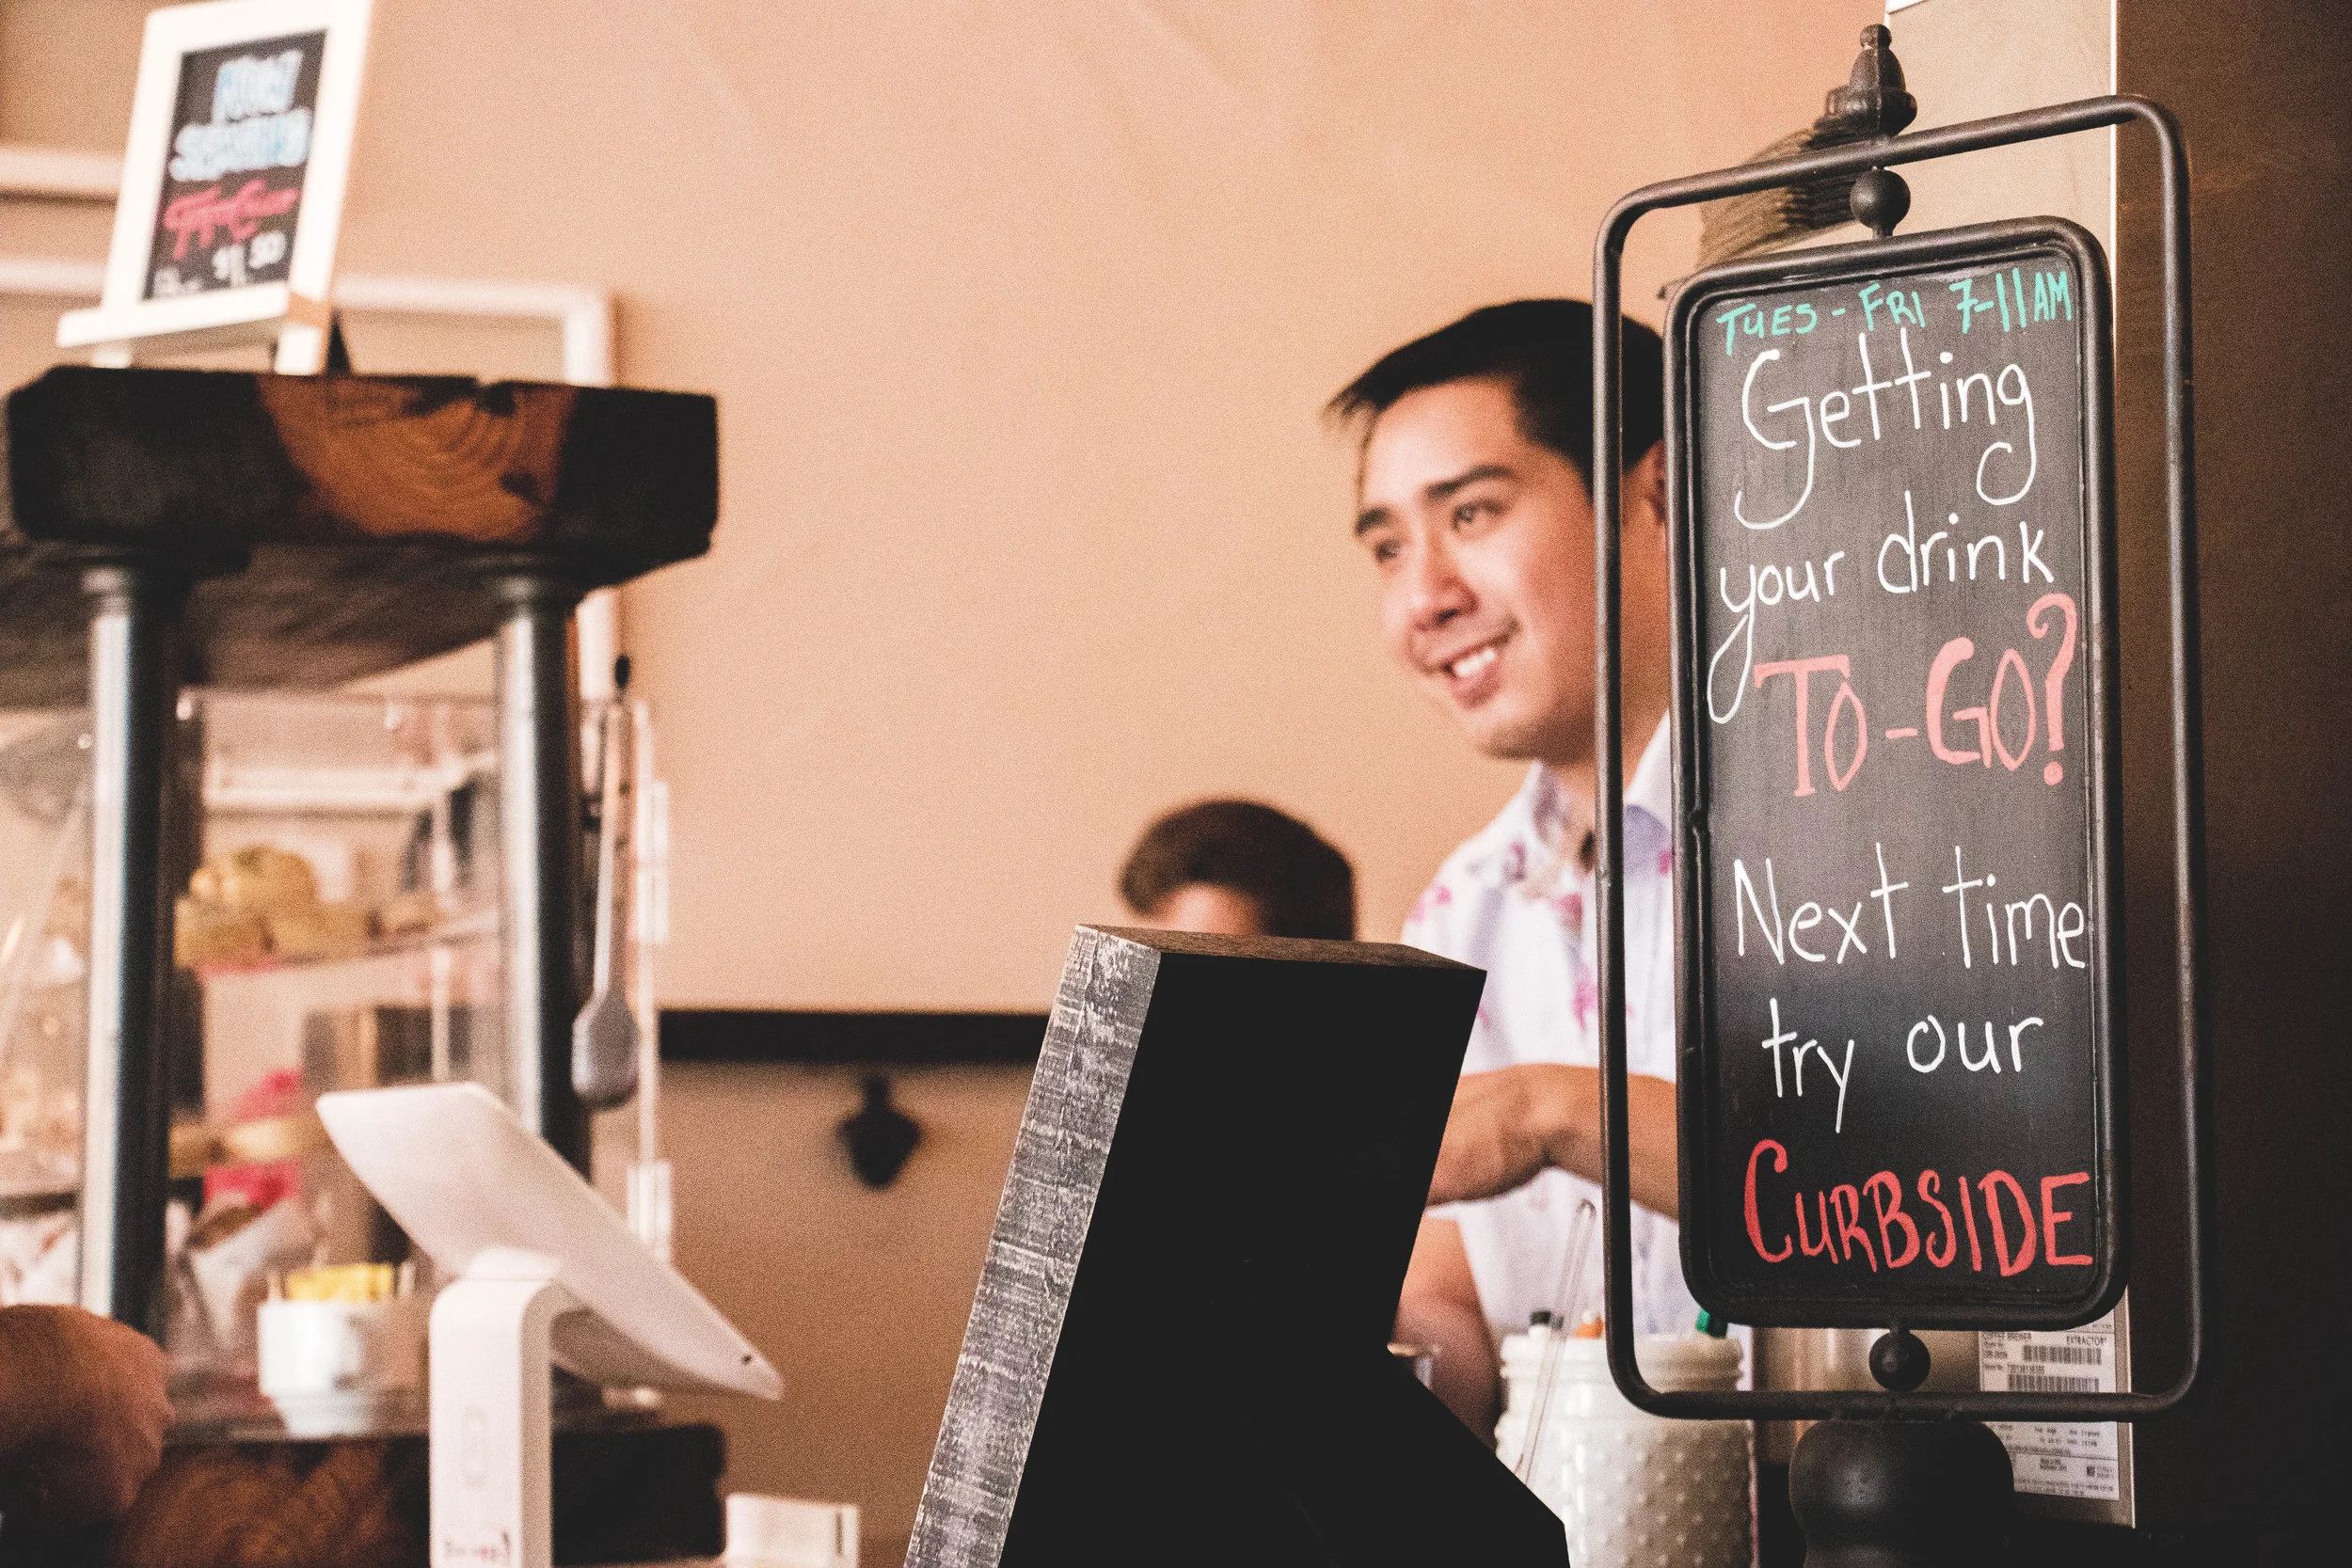 TUES - FRI 7-11AM
Getting
your drink
TO-GO?
Next time
try our
CURBSIDE
COFFEE BREWER
EXTRACTOR